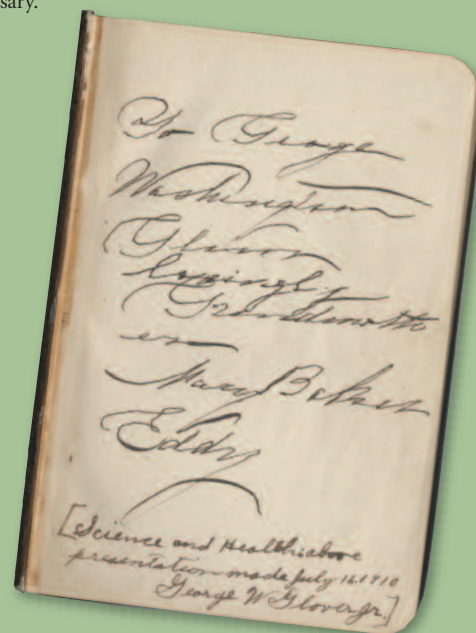 sary.
To George
Washington
Glover
lovingly
Grandmoth
er
Mary Baker
Eddy
[Science and Health above
presentation made July 16. 1910
George W Glover Jr.]